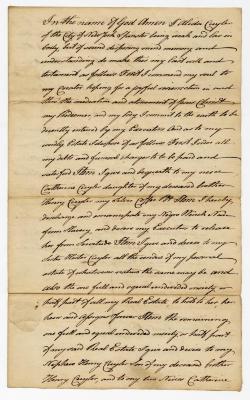 In the name of God Amen I Alida Cuyler
of the City of New York Spinster being weak and low in
body but of sound disposing mind memory and
understanding do make this my last will and
testament as follows First I commend my soul to
my Creator hoping for a joyful resurrection in and
thro the mediation and atonement of Jesus Christ
my Redeemer and my Body I commit to the earth to be
decently interred by my Executors And as to my
worldly Estate I dispose of it as follows First I order all
my debts and funeral charges to be paid and
satisfied Item I give and bequeath to my niece
Catharine Cuyler daughter of my deceased brother
Henry Cuyler my silver Coffee Pot Item I hereby
discharge and manumit my Negro Wench
from Slavery, and desire my Executors to release
her from Servitude Item I give and devise to my
Sister all the residue of my personal
estate of whatsoever nature the same may be and
also the one full and equal undivided moiety or
half part of all my Real Estate to hold to her her
heirs and assigns forever Item the remaining
one full and equal undivided moiety or half part
of my said Real Estate I give and devise to my
Nephew Henry Cuyler son of my deceased brother
Henry Cuyler, and to my two Nieces Catharine